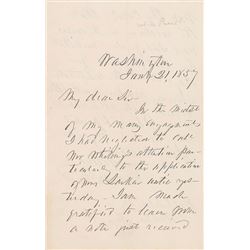 Washington
Jany 21. 1857
My dear Sir
In the midst
of my many engagements
I had neglected to call
Mr Whiting's attention par-
ticularly to the application
of Mrs until yes-
terday. I am much
gratified to learn from
a note just received